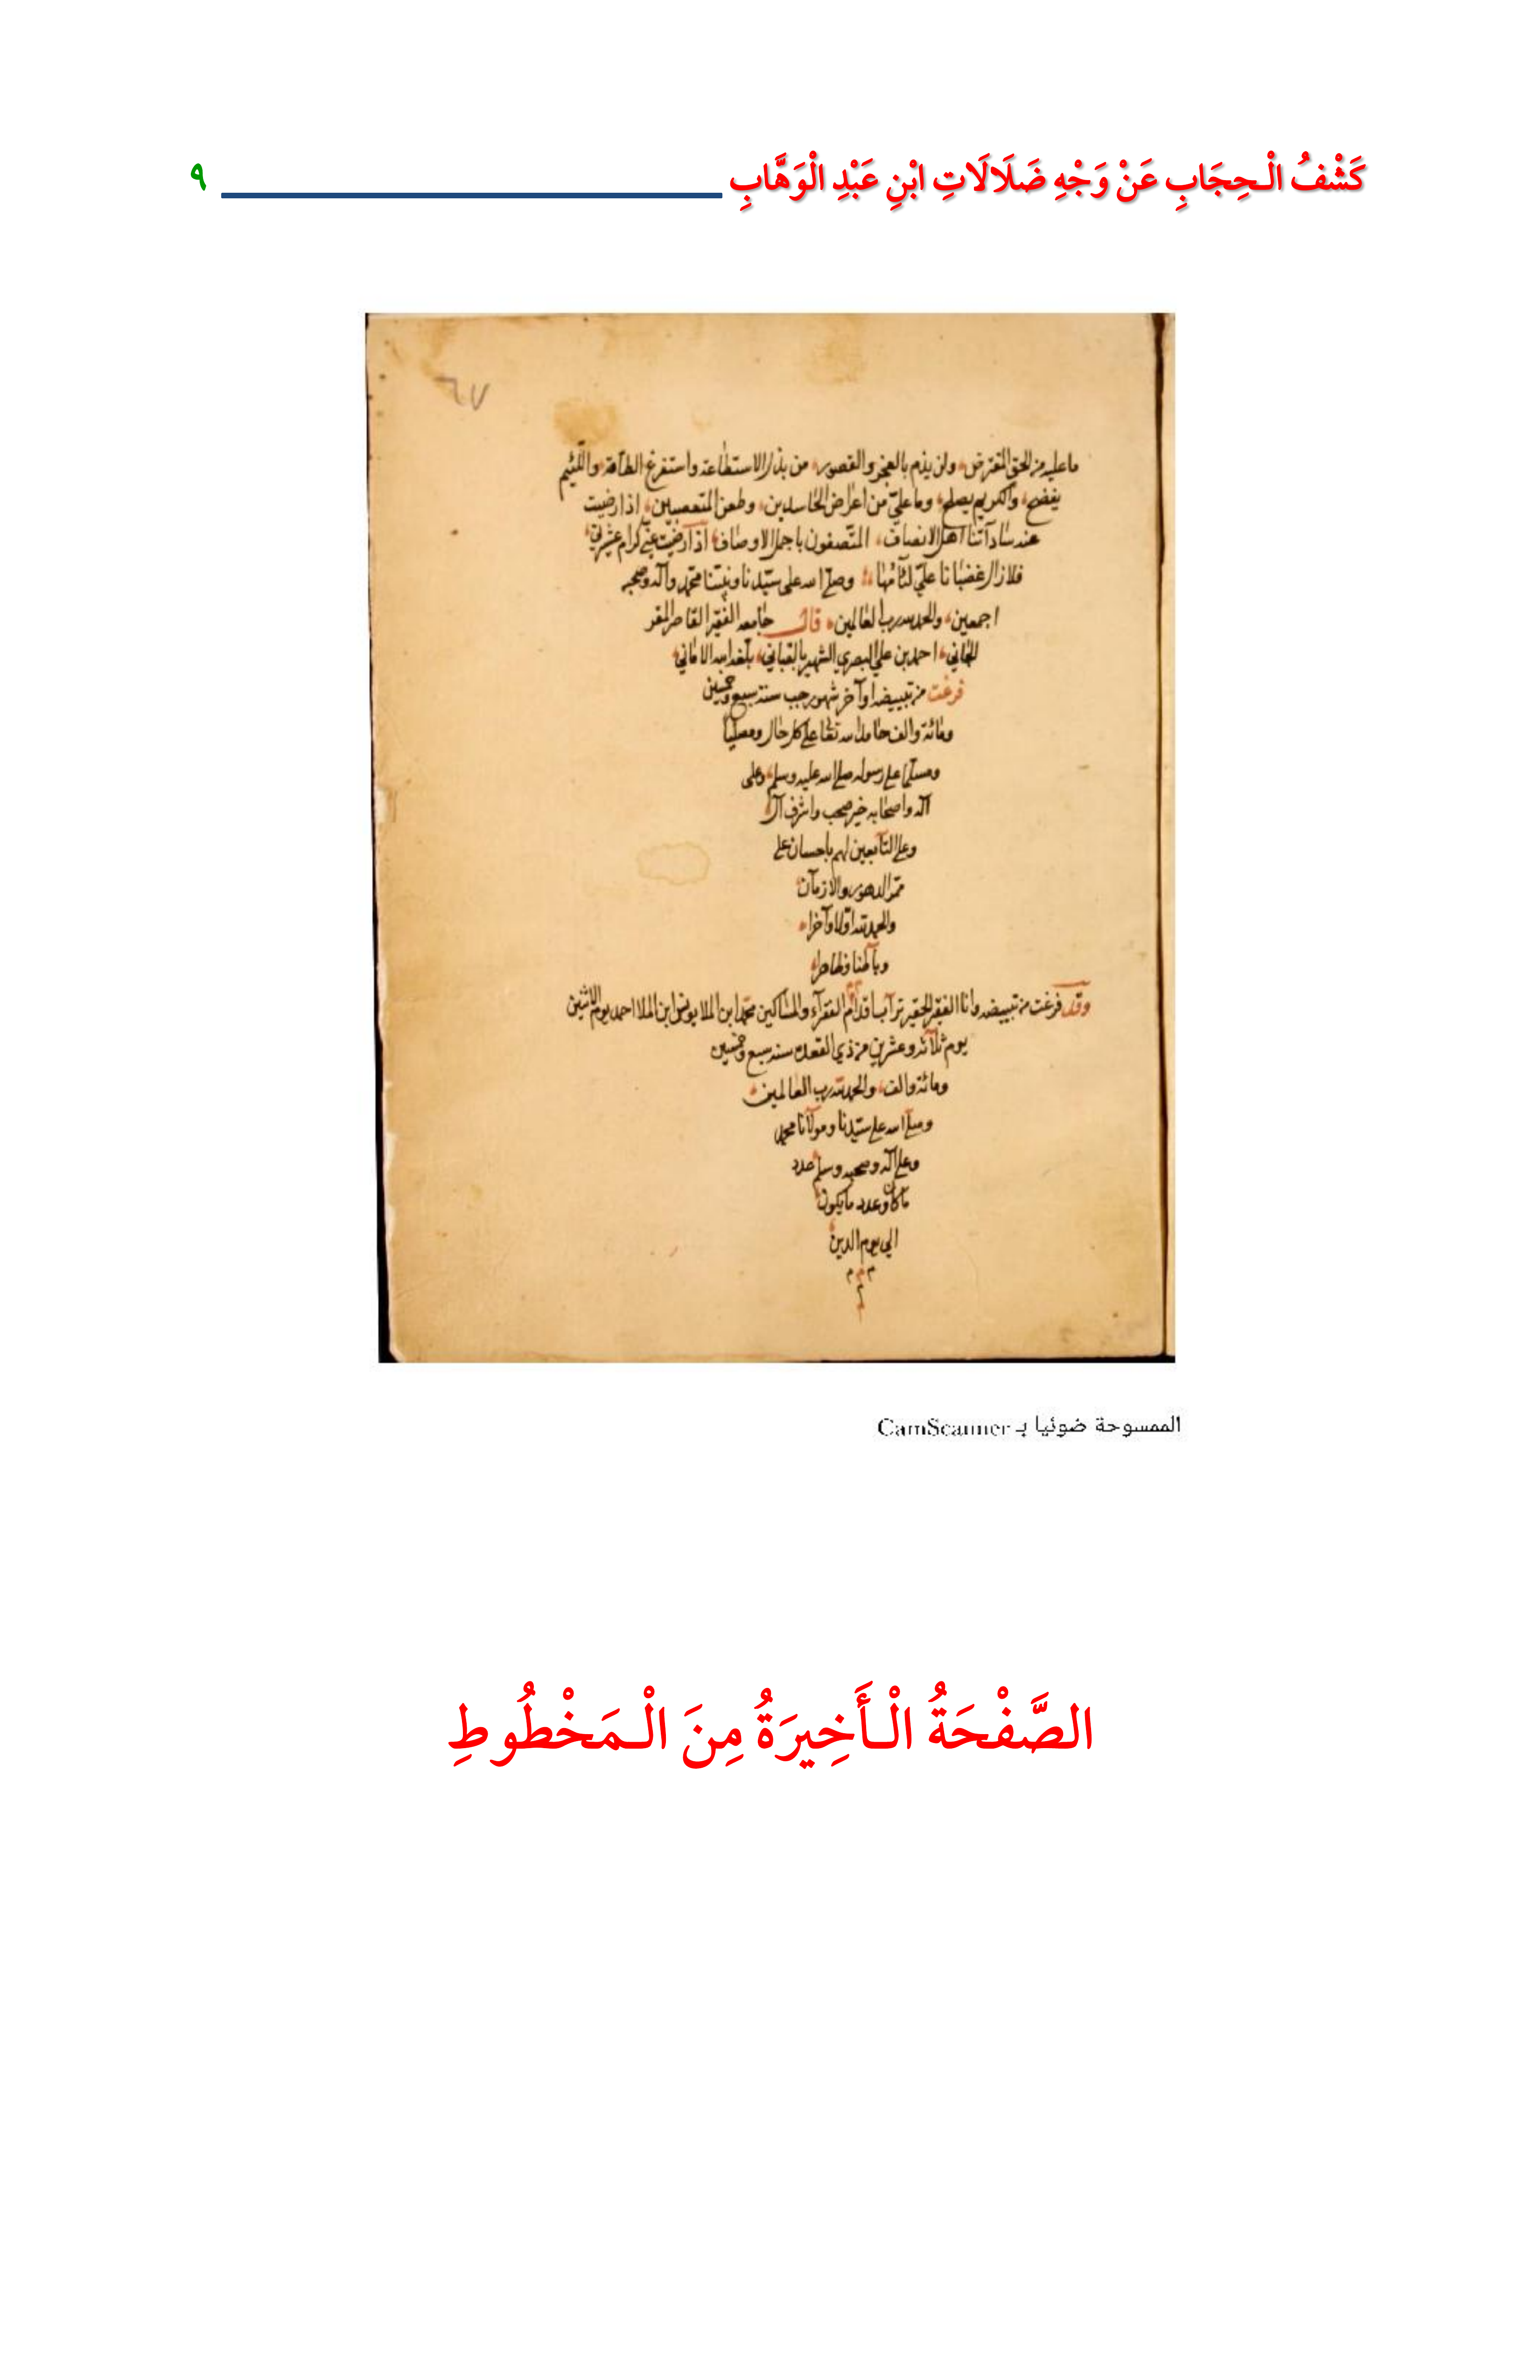 كَشْفُ الْـحِجَابِ عَنْ وَجْهِ ضَلَالَاتِ ابْنِ عَبْدِ الْوَهَّابِ ٩
٦٧
ما عليه من الحق المفترض، ولن يذم بالعجز والقصور، من بذل الاستطاعة واستفرغ الطاقة، واللئيم
يفضح، والكريم يصلح، وما عليّ من اعراض الحاسدين، وطعن المتعصبين، اذا رضيت
عند ساداتنا اهل الانصاف، المتصفون باجمل الاوصاف، اذا رضيت عني كرام عشيرتي،
فلا زال غضبانا عليّ لئامها، وصلى الله على سيدنا ونبينا محمد وآله وصحبه
اجمعين، والحمد لله رب العالمين، قال جامعه الفقير القاصر المقر
للجاني، احمد بن علي البصري الشهير بالقباني، بلغه الله الاماني،
فرغت من تبييضه اواخر شهر رجب سنة سبع وخمسين
ومائة والف حامدا لله تعالى على كل حال ومصليا
ومسلما على رسوله صلى الله عليه وسلم، وعلى
آله واصحابه خير صحب واشرف آل،
وعلى التابعين لهم باحسان على
ممر الدهور والازمان،
والحمد لله اولا وآخرا،
وباطنا وظاهرا،
وقد فرغت من تبييضه وانا الفقير الحقير تراب اقدام الفقرآء والمساكين محمد ابن الملا يونس ابن الملا احمد يوم الاثنين
يوم ثلاثة وعشرين من ذي القعدة سنة سبع وخمسين
ومائة والف، والحمد لله رب العالمين،
وصلى الله على سيدنا ومولانا محمد
وعلى آله وصحبه وسلم عدد
ما كان وعدد ما يكون
الى يوم الدين
م م م
م
الممسوحة ضوئيا بـ CamScanner
الصَّفْحَةُ الْـأَخِيرَةُ مِنَ الْـمَخْطُوطِ